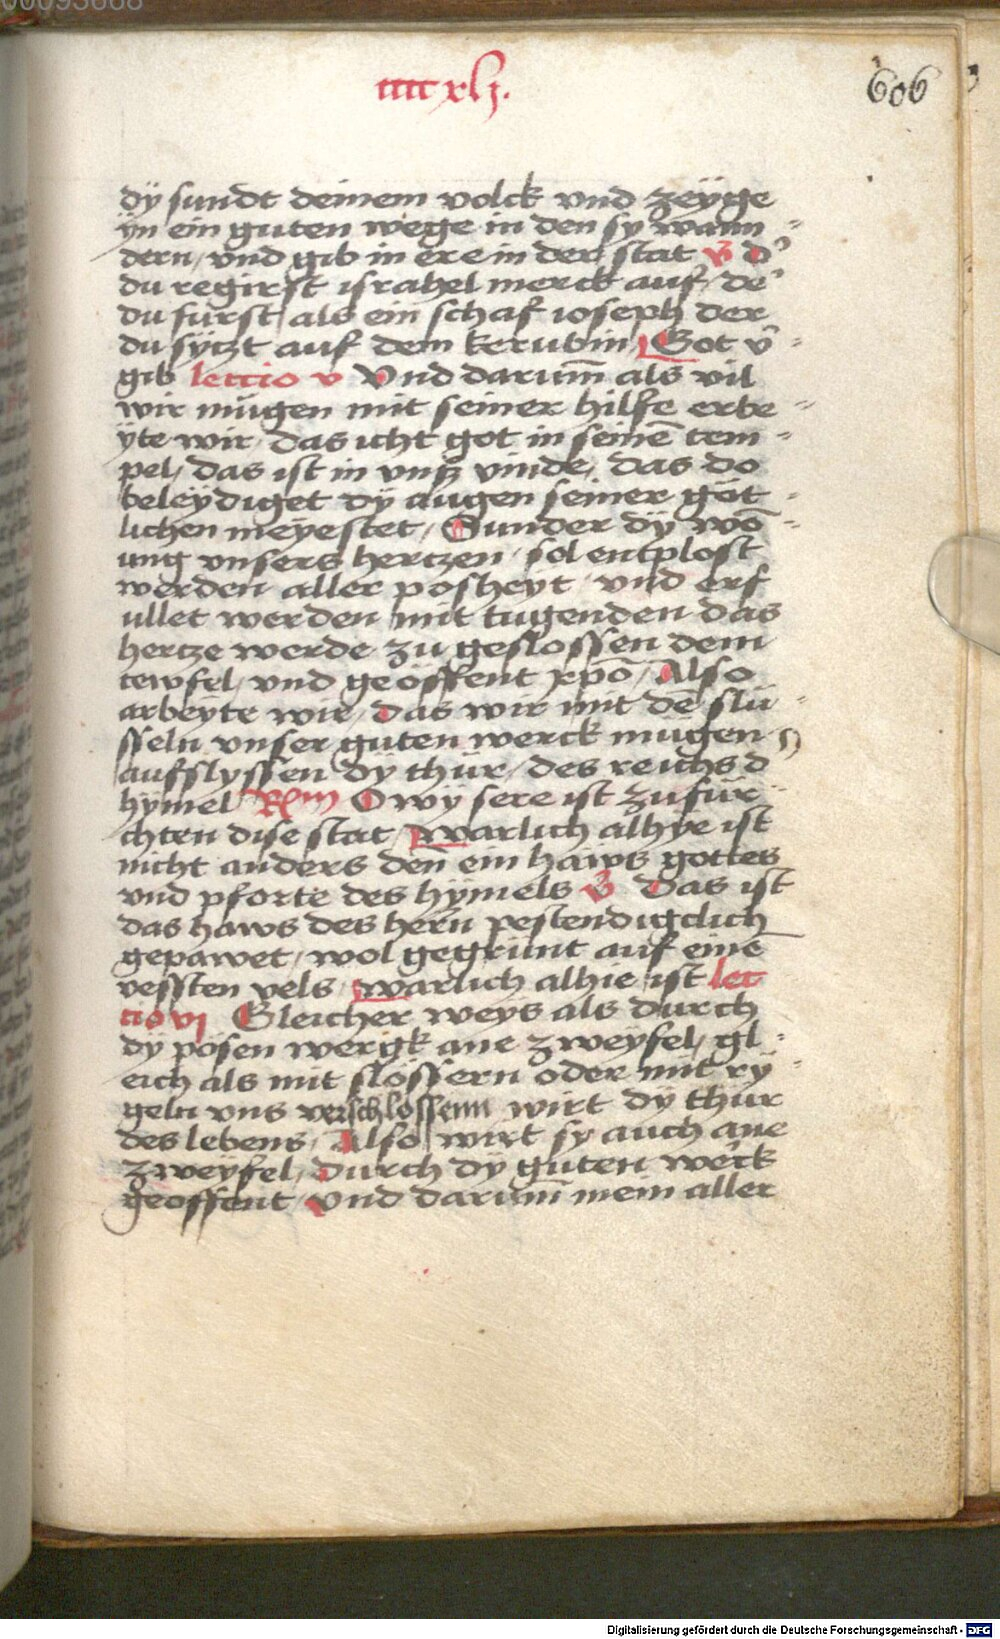 00093668
ccccxlj.
606
dÿ sundt deinem volck vnd zeÿge
ÿn ein guten wege in den sy wann-
dern / vnd gib in ere in der stat V D'
du regirst israhel merck auf / de'
du fürst als ein schaf ioseph der
du sÿtzt auf dem kerubin Got v'-
gib lectio v Vnd darum̄ als vil
wir mügen mit seiner hilfe erbe-
ÿte wir / das icht got in seinē tem-
pel / das ist in vnß vinde / das do
beleÿdiget dÿ augen seiner göt-
lichen meÿestet / Sunder dÿ wō-
ung vnsers hertzen / sol entplost
werden aller posheyt / vnd erf
ullet werden mit tugenden das
hertze werde zu geslossen dem
tewfel / vnd geöffent xp̄o / Also
arbeÿte wir / das wir mit dē slü-
sseln vnser guten werck mügen
aufslyssen dÿ thür / des reichs d
hÿmel Rm O wÿ sere ist zu für-
chten dise stat / warlich alhye ist
nicht anders den̄ ein haws gottes
vnd pforte des hÿmels V Das ist
das haws des hern̄ pestendigclich
gepawet / wol gegrünt auf einē
vessten vels / warlich alhie ist lec
tio vj Gleicher weys als durch
dÿ pösen wergk ane zweyfel / gl-
eich als mit slössern oder mit rÿ-
geln vns verschlossenn wirt dÿ thür
des lebens / Also wirt sy auch ane
zweÿfel / durch dÿ guten werck
geoffent / Vnd darum̄ mein aller
Digitalisierung gefördert durch die Deutsche Forschungsgemeinschaft - DFG